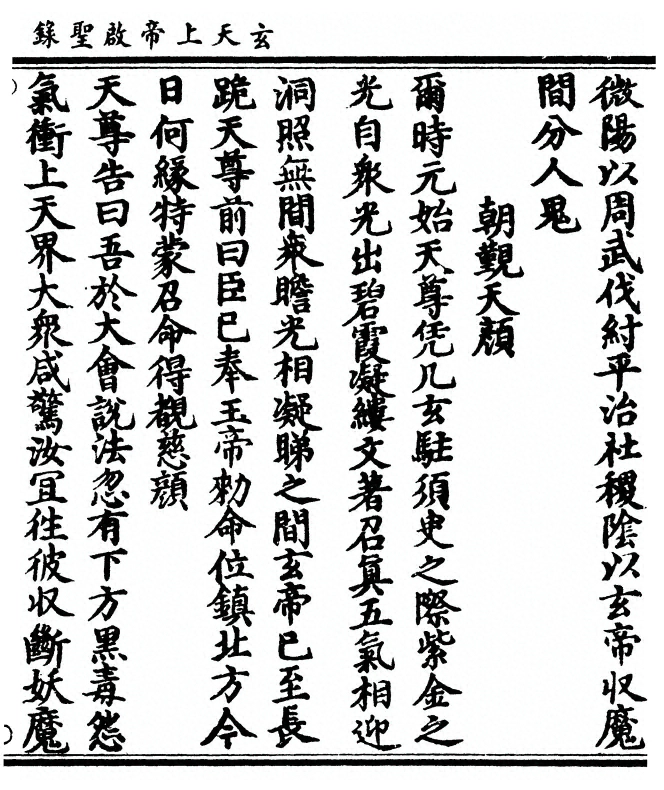 玄天上帝啟聖錄
微陽以周武伐紂平治社稷陰以玄帝收魔
間分人鬼
朝覲天顏
爾時元始天尊凭几玄駐須史之際紫金之
光自衆光出碧霞凝縷文著召眞五氣相迎
洞照無間衆瞻光相凝睇之間玄帝已至長
跪天尊前曰臣已奉玉帝勑命位鎮北方今
日何緣特蒙召命得覩慈顏
天尊告曰吾於大會說法忽有下方黑毒𢙣
氣衝上天界大衆咸驚汝冝徃彼收斷妖魔